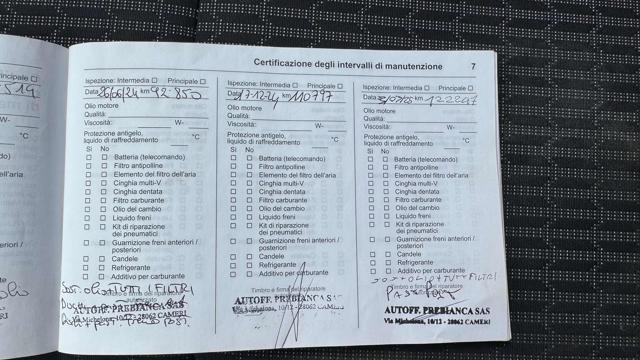 Certificazione degli intervalli di manutenzione 7
Principale
Ispezione: Intermedia Principale
Data 26/06/24 km 92.850
Olio motore
Qualità:
Viscosità: W-
Protezione antigelo,
liquido di raffreddamento °C
Sì No
Batteria (telecomando)
Filtro antipolline
Elemento del filtro dell'aria
Cinghia multi-V
Cinghia dentata
Filtro carburante
Olio del cambio
Liquido freni
Kit di riparazione
dei pneumatici
Guarnizione freni anteriori /
posteriori
Candele
Refrigerante
Additivo per carburante
Sost. olio TUTTI FILTRI
AUTOFF. PREBIANCA SAS
Via Michelona, 10/12 - 28062 CAMERI
Ispezione: Intermedia Principale
Data 17-12-24 km 110797
Olio motore
Qualità:
Viscosità: W-
Protezione antigelo,
liquido di raffreddamento °C
Sì No
Batteria (telecomando)
Filtro antipolline
Elemento del filtro dell'aria
Cinghia multi-V
Cinghia dentata
Filtro carburante
Olio del cambio
Liquido freni
Kit di riparazione
dei pneumatici
Guarnizione freni anteriori /
posteriori
Candele
Refrigerante
Additivo per carburante
Timbro e firma del riparatore
AUTOFF. PREBIANCA SAS
Via Michelona, 10/12 - 28062 CAMERI
Ispezione: Intermedia Principale
Data km
Olio motore
Qualità:
Viscosità: W-
Protezione antigelo,
liquido di raffreddamento °C
Sì No
Batteria (telecomando)
Filtro antipolline
Elemento del filtro dell'aria
Cinghia multi-V
Cinghia dentata
Filtro carburante
Olio del cambio
Liquido freni
Kit di riparazione
dei pneumatici
Guarnizione freni anteriori /
posteriori
Candele
Refrigerante
Additivo per carburante
OLIO + TUTTI FILTRI
Timbro e firma del riparatore
AUTOFF. PREBIANCA SAS
Via Michelona, 10/12 - 28062 CAMERI